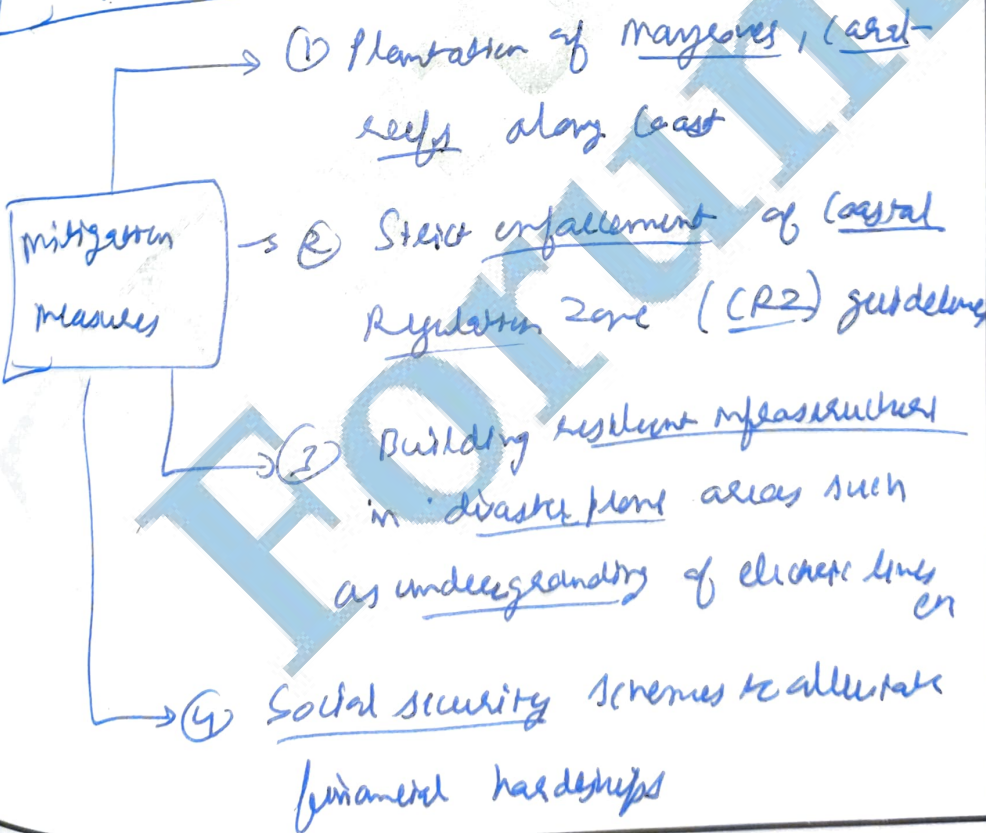 ① Plantation of Mangroves, Coral-
reefs along Coast
Mitigation
Measures
② Strict enforcement of Coastal
Regulation Zone (CRZ) guidelines
③ Building resilient infrastructure
in disaster prone areas such
as undergrounding of electric lines
④ Social security schemes to alleviate
financial hardships
Forum